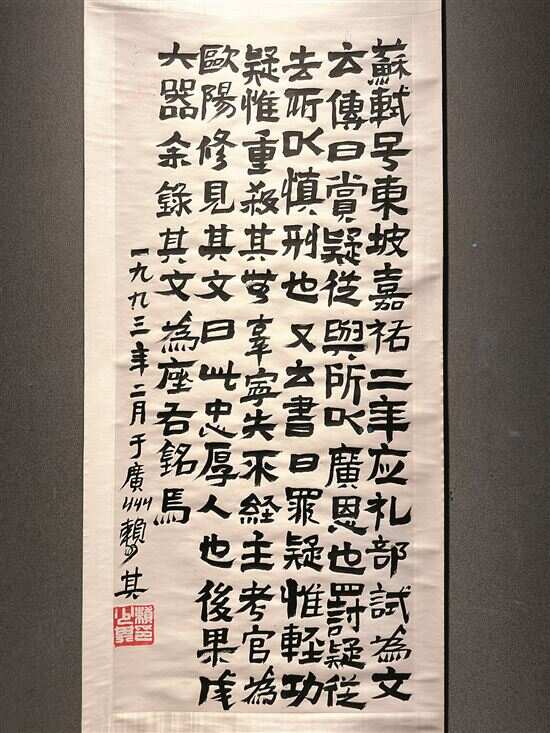 蘇軾号東坡嘉祐二年应礼部試為文
云傳曰賞疑從與所以廣恩也罰疑從
去所以慎刑也又云書曰罪疑惟軽功
疑惟重殺其無辜寧失不経主考官為
歐陽修見其文曰此忠厚人也後果成
大器余錄其文為座右銘焉
一九九三年二月于廣州賴少其